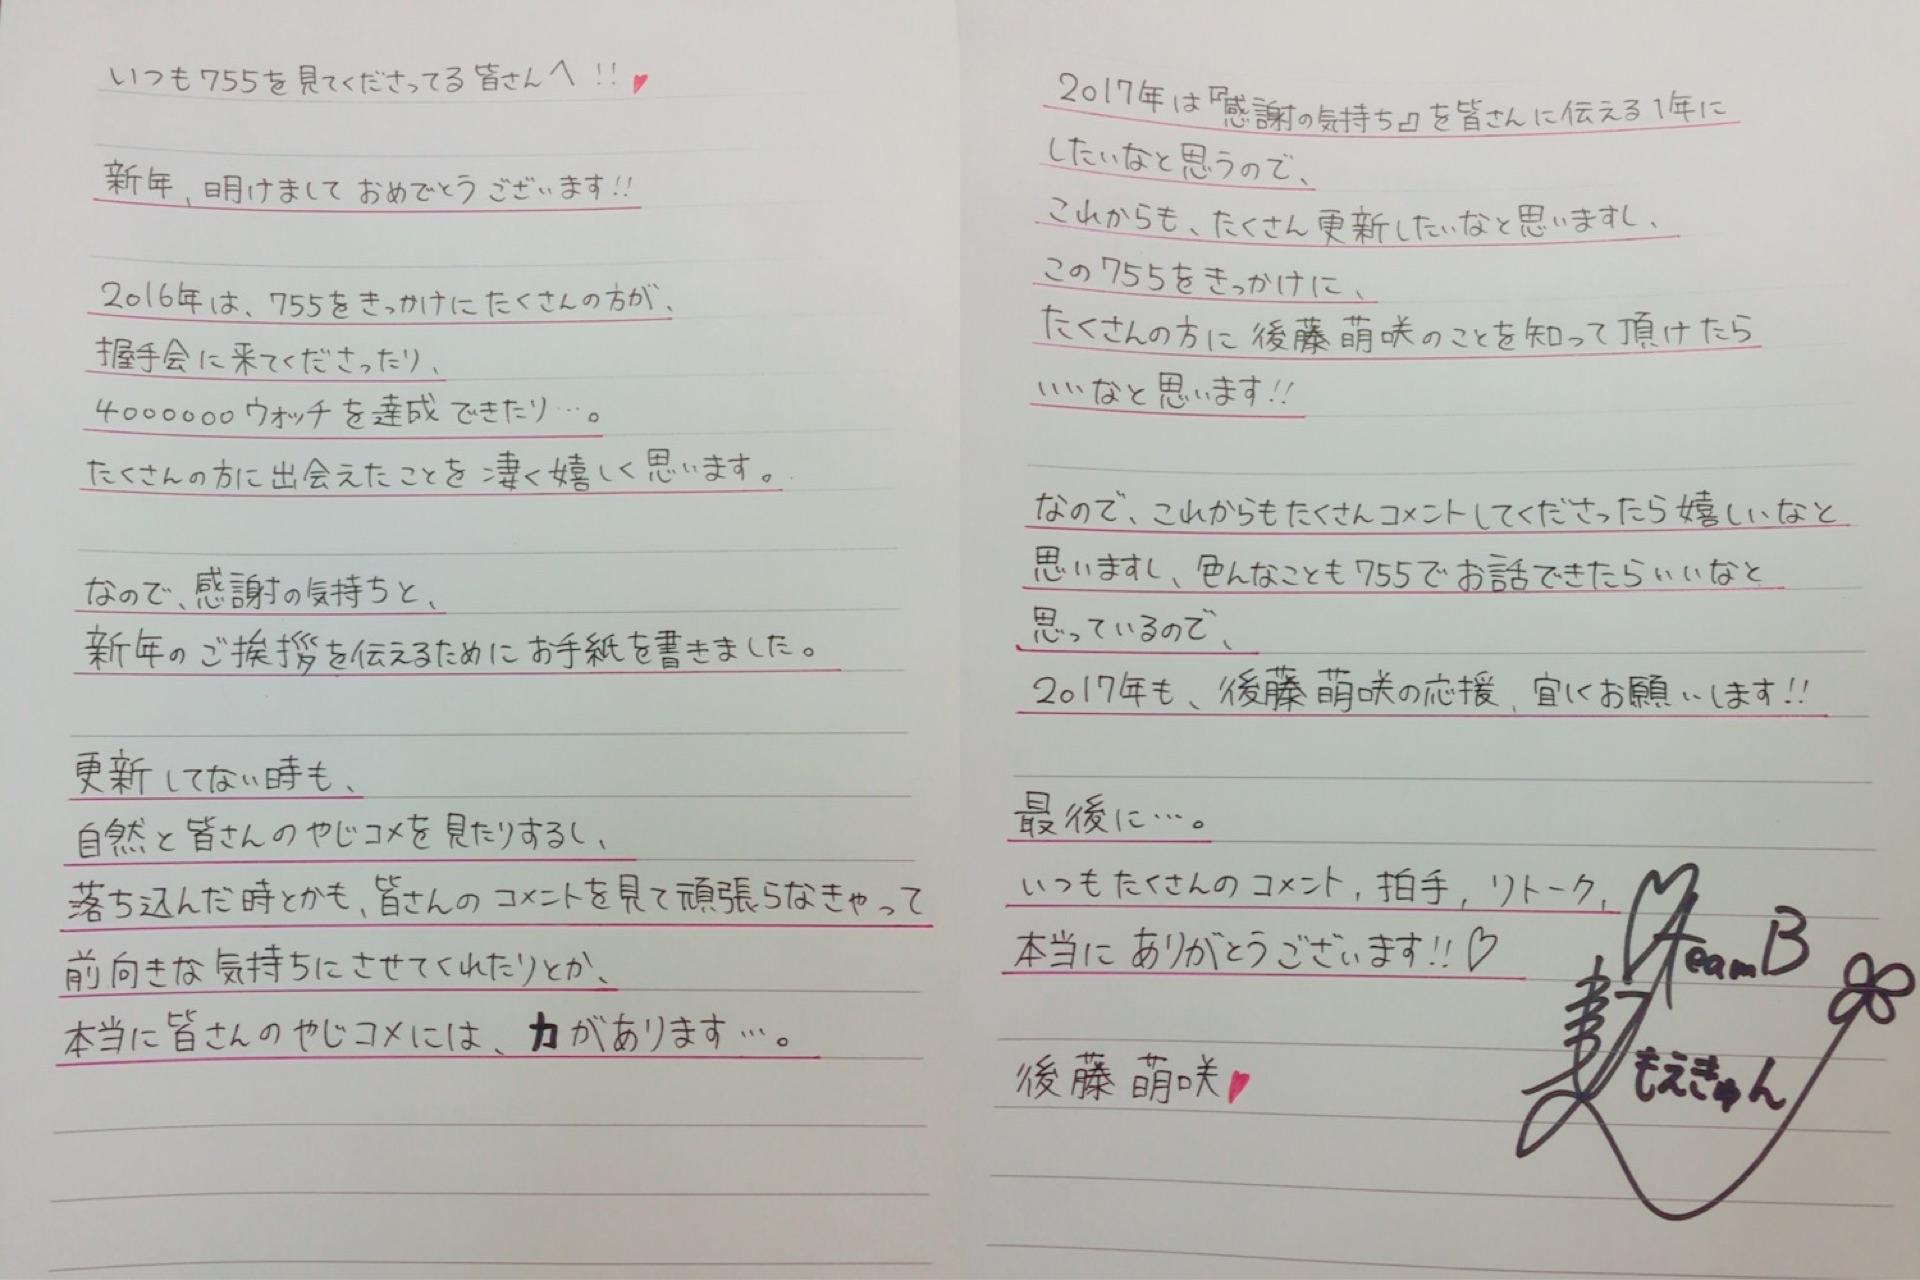 いつも755を見てくださってる皆さんへ!!♥
新年、明けましておめでとうございます!!
2016年は、755をきっかけにたくさんの方が、
握手会に来てくださったり、
4000000ウォッチを達成できたり…。
たくさんの方に出会えたことを凄く嬉しく思います。
なので、感謝の気持ちと、
新年のご挨拶を伝えるためにお手紙を書きました。
更新してない時も、
自然と皆さんのやじコメを見たりするし、
落ち込んだ時とかも、皆さんのコメントを見て頑張らなきゃって
前向きな気持ちにさせてくれたりとか、
本当に皆さんのやじコメには、力があります…。
2017年は『感謝の気持ち』を皆さんに伝える1年に
したいなと思うので、
これからも、たくさん更新したいなと思いますし、
この755をきっかけに、
たくさんの方に後藤萌咲のことを知って頂けたら
いいなと思います!!
なので、これからもたくさんコメントしてくださったら嬉しいなと
思いますし、色んなことも755でお話できたらいいなと
思っているので、
2017年も、後藤萌咲の応援、宜しくお願いします!!
最後に…。
いつもたくさんのコメント、拍手、リトーク、
本当にありがとうございます!!♡
後藤萌咲♥
TeamB
もえきゅん